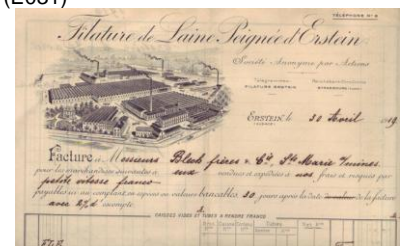 (E031)
TÉLÉPHONE N° 2
Filature de Laine Peignée d'Erstein
Société Anonyme par Actions
Télégrammes:
FILATURE ERSTEIN
STRASBOURG
ERSTEIN, le 30 Avril 19
Facture à Messieurs Bloch frères & Cie, Ste Marie / mines
pour les marchandises suivantes à eux vendues et expédiées à nos frais et risques par
petite vitesse franco
payables ici au comptant en espèces ou valeurs bancables 30 jours après la date de la facture
avec 2% d'escompte
CAISSES VIDES ET TUBES A RENDRE FRANCO